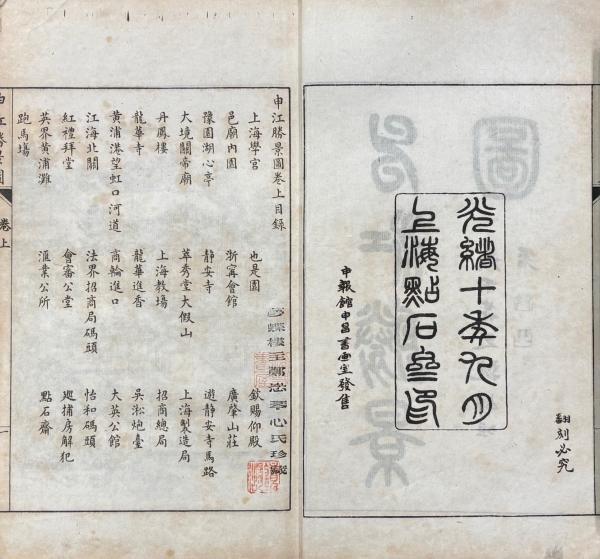 光緒十年九月
上海點石齋印
申報館申昌書畫室發售
翻刻必究
申江勝景圖卷上目錄
上海學宮 也是園 欽賜仰殿
邑廟內園 浙甯會館 廣肇山莊
豫園湖心亭 靜安寺 遊靜安寺馬路
大境關帝廟 萃秀堂大假山 上海製造局
丹鳳樓 上海教場 招商總局
龍華寺 龍華進香 吳淞炮臺
黃浦港望虹口河道 商輪進口 大英公館
江海北關 法界招商局碼頭 怡和碼頭
紅禮拜堂 會審公堂 廵捕房解犯
英界黃浦灘 滙業公所 點石齋
跑馬塲
申江勝景圖 卷上
蝶樓主鄭琴心氏珍藏